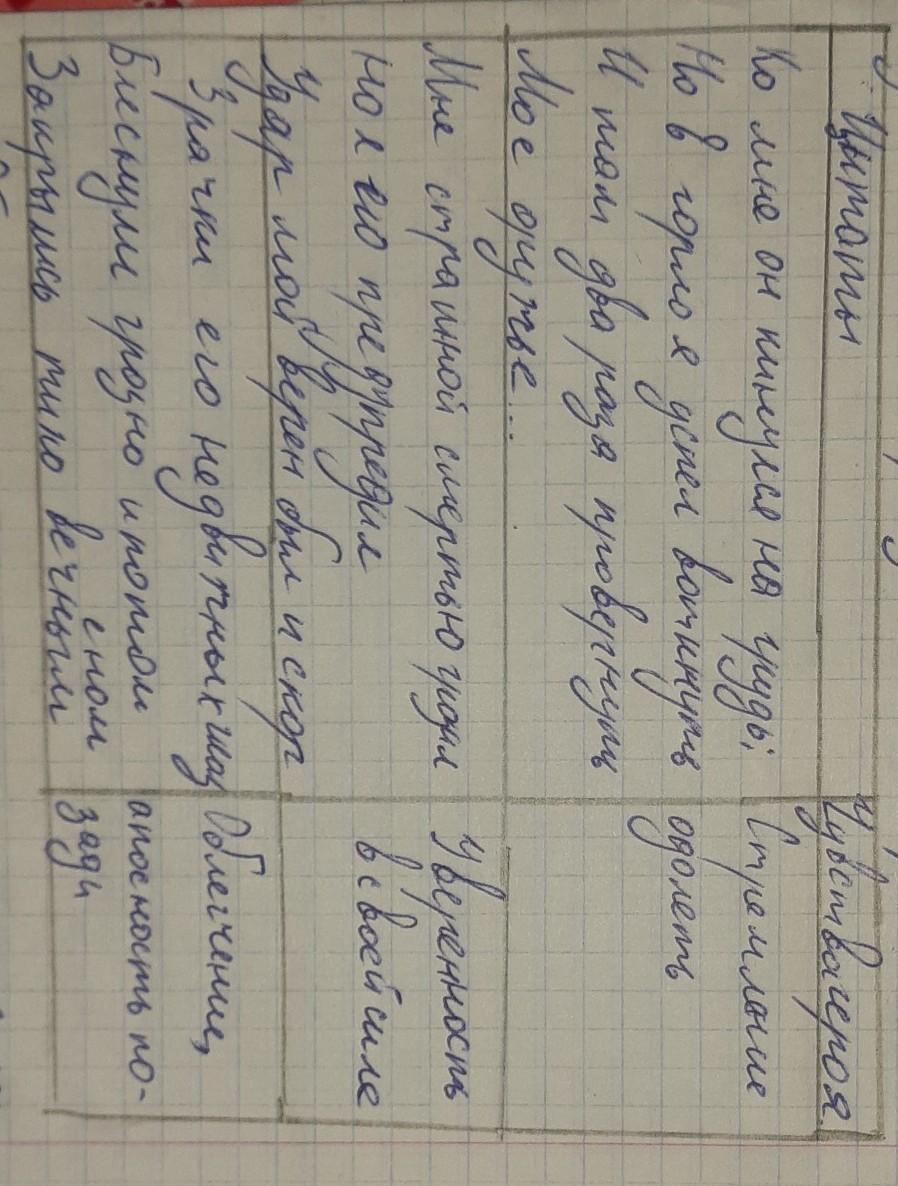 Цытаты
Ко мне он кинулся на грудь:
Но в горло я успел воткнуть
И там два раза провернуть
Мое оружье...
Мне страшной смертью грозил
но я его предупредил
Удар мой верен был и скор
Зрачки его недвижных глаз
Блеснули грозно и потом
Закрылись тихо вечным
сном
Чувства героя
Стремление
одолеть
Уверенность
в своей силе
Облегчение,
апосность по-
зади